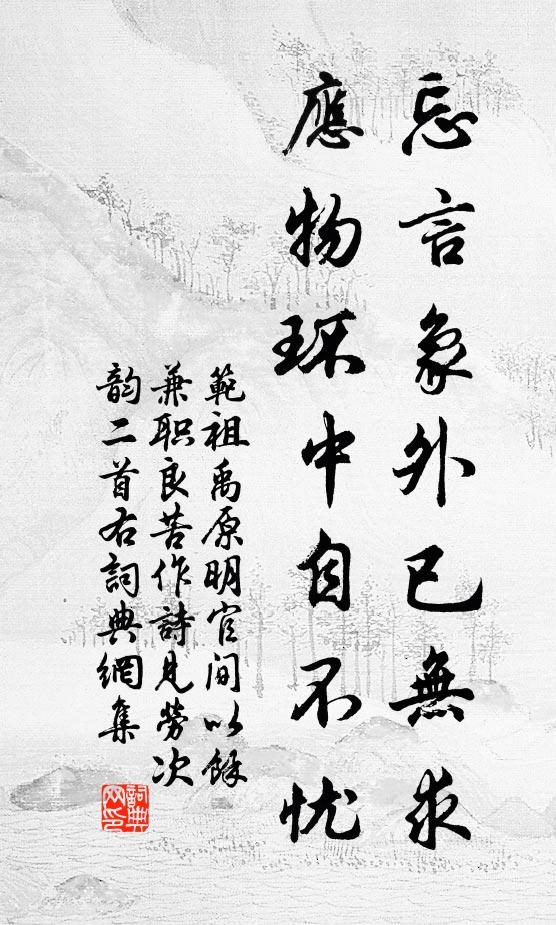 忘言象外已無求
應物环中自不忧
範祖禹原明官间以餘
兼职良苦作詩见劳次
韵二首右詞典網集
詞典
网印